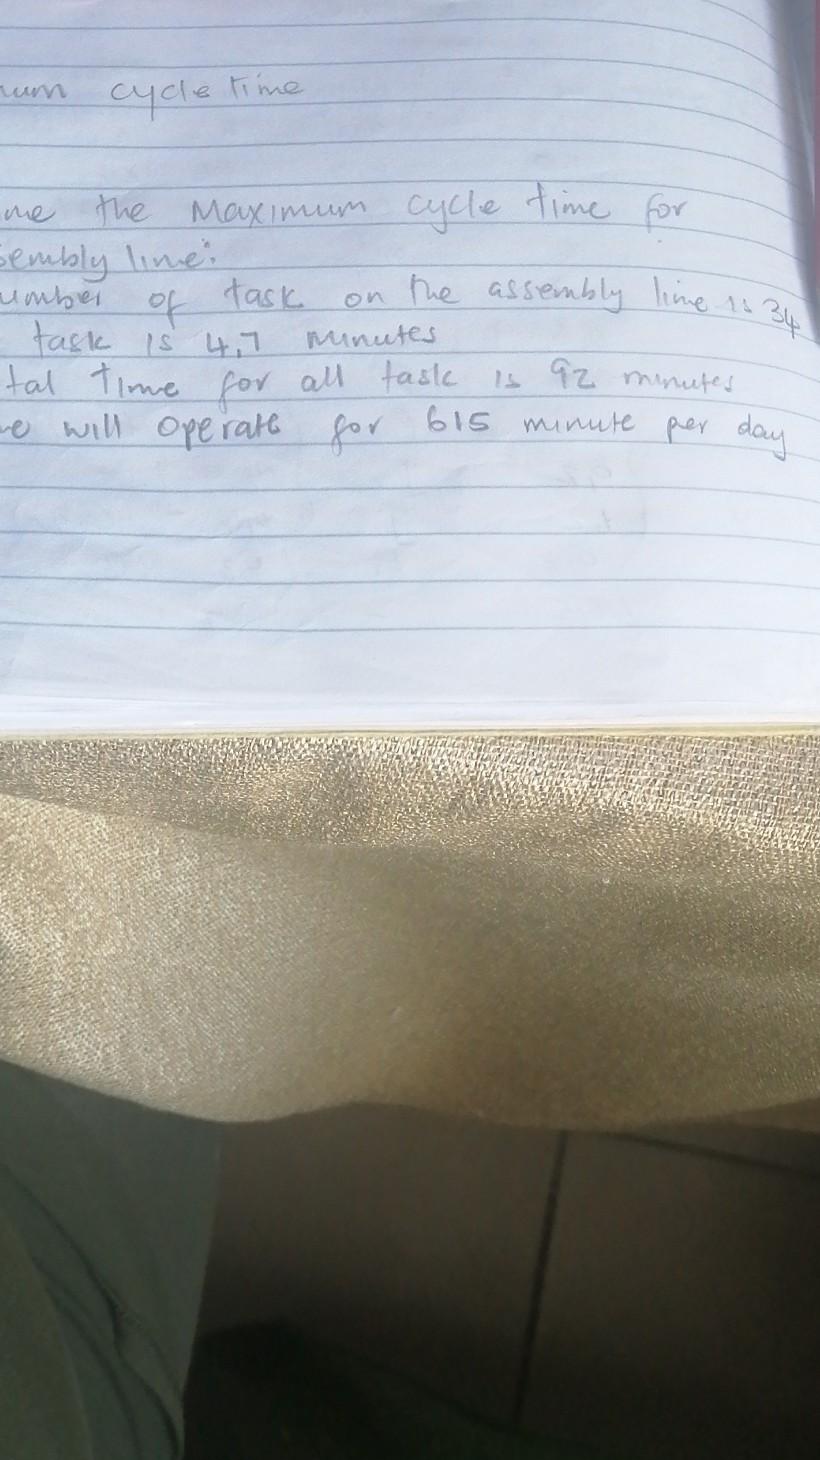 num cycle time
me the Maximum cycle time for
sembly line:
umber of task on the assembly line is 34
task is 4.7 minutes
tal Time for all task is 92 minutes
e will operate for 615 minute per day